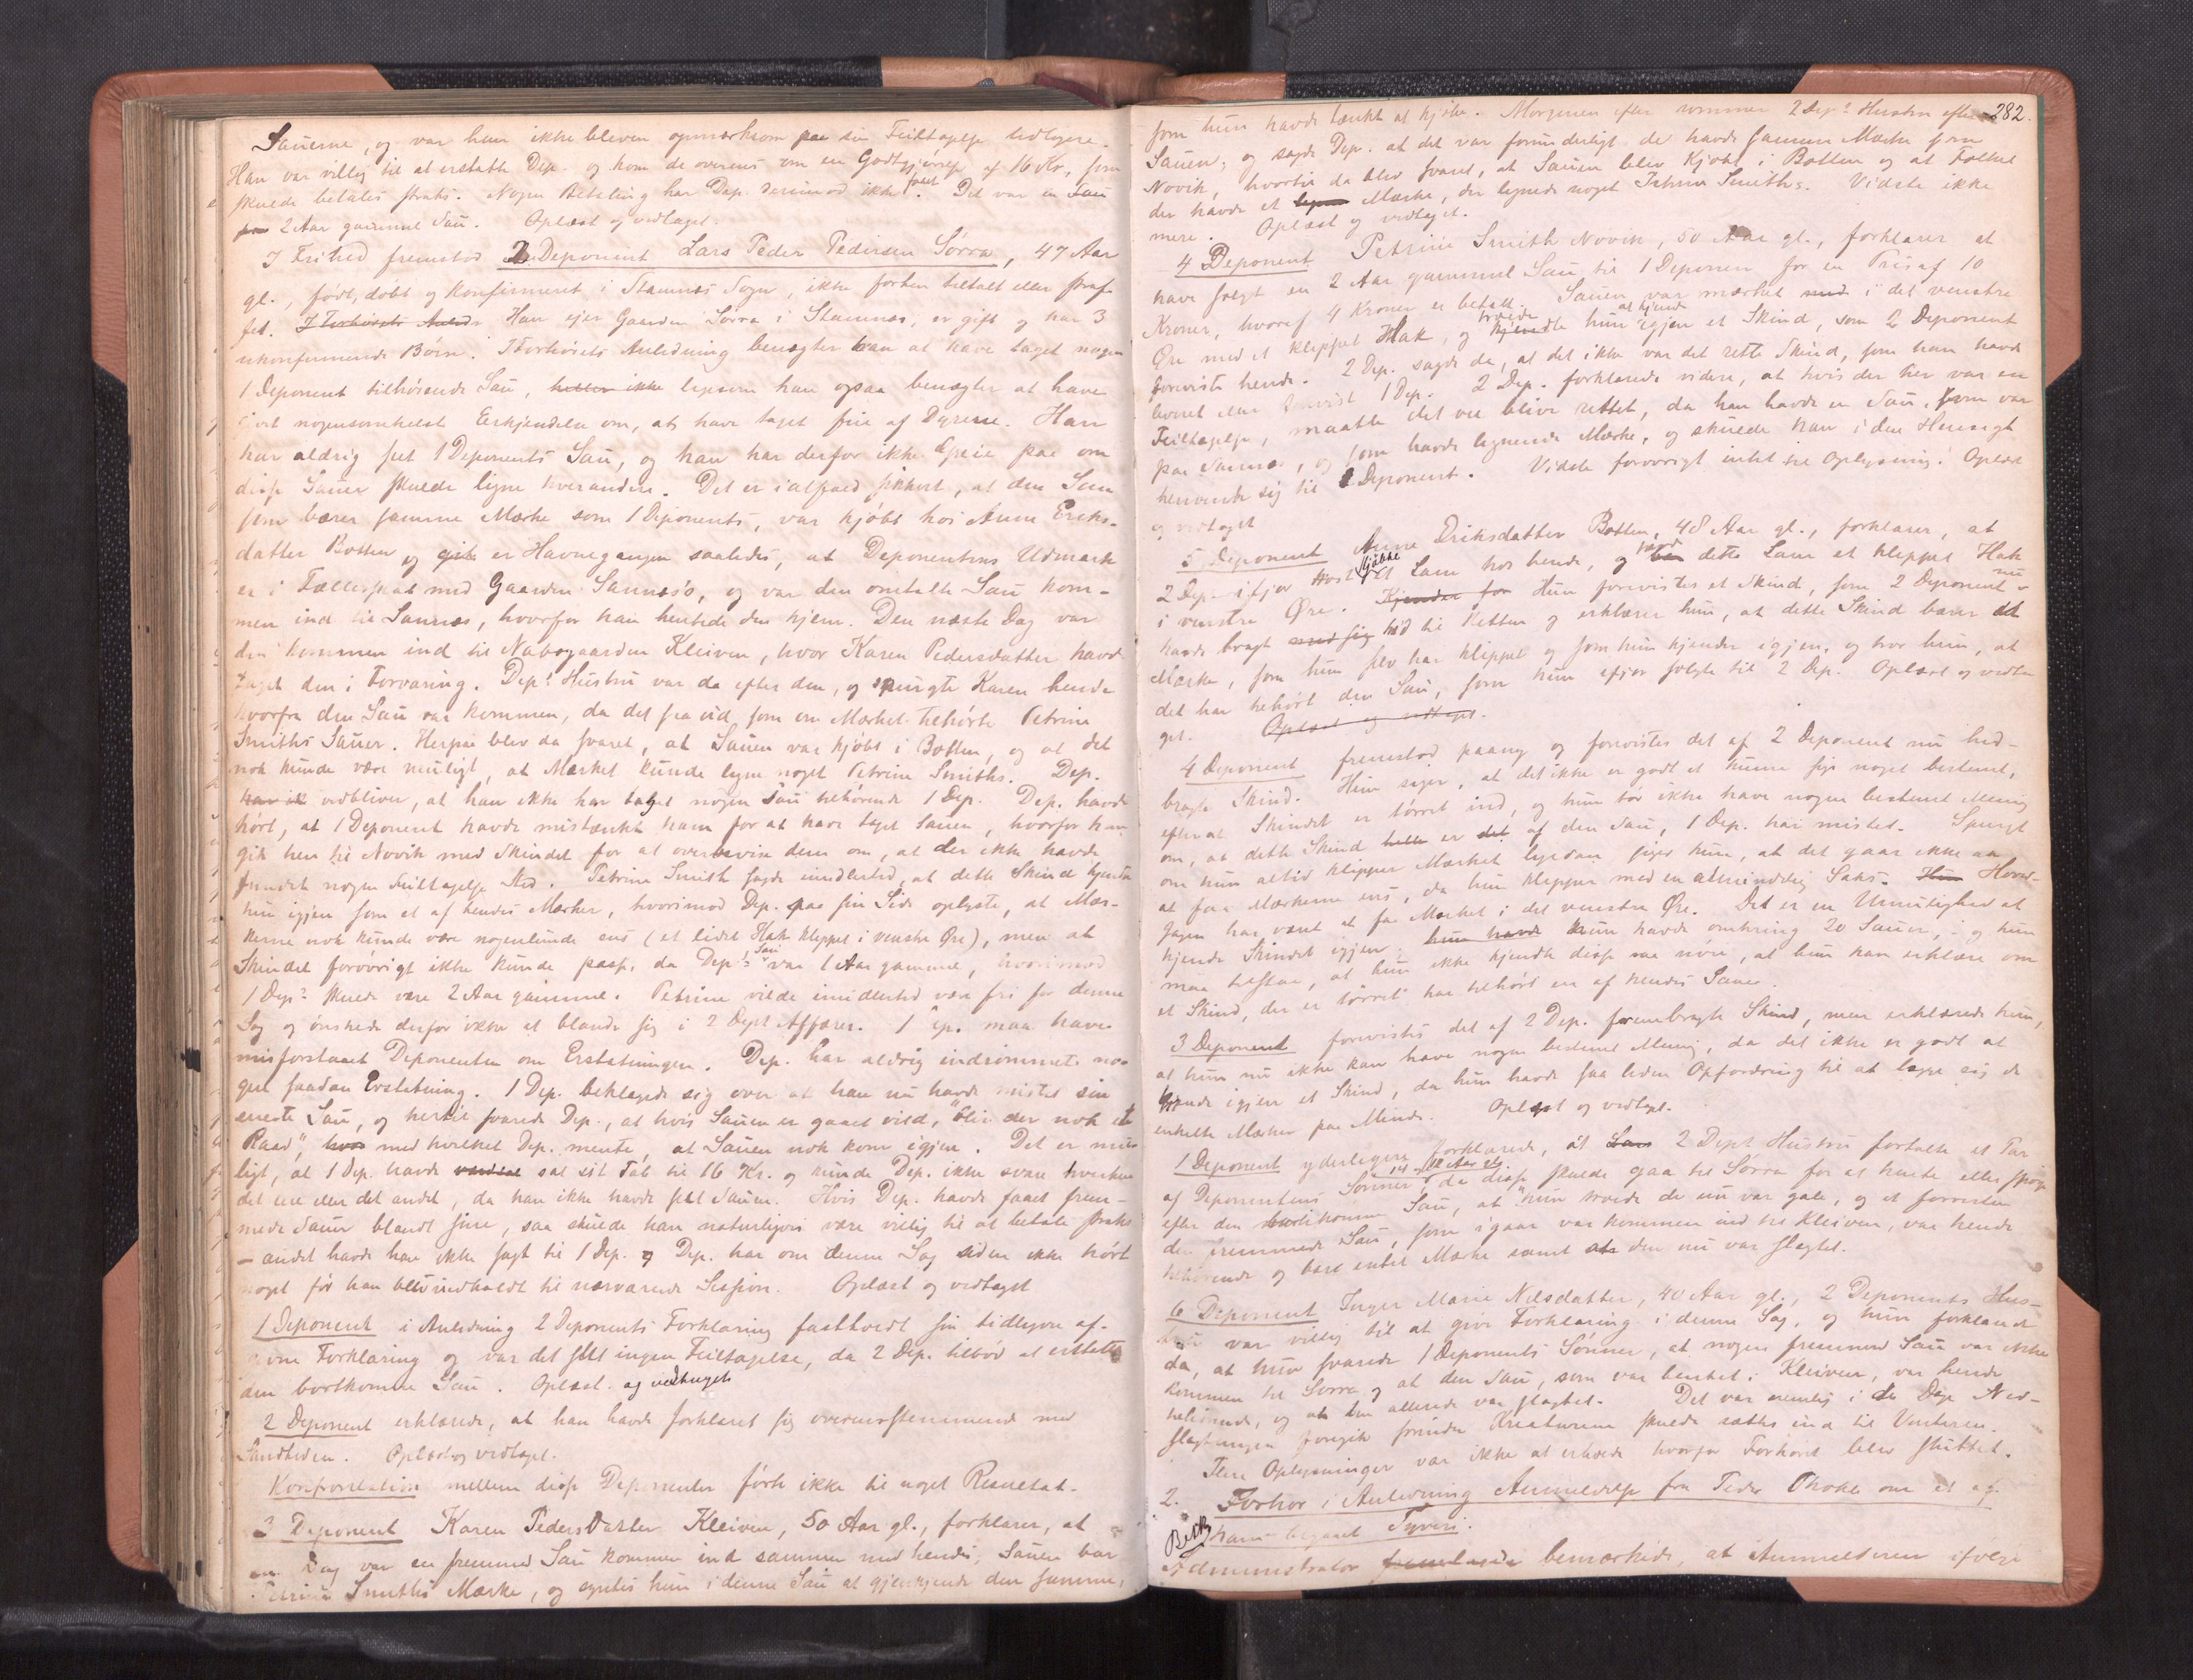 Sauerne, og var han ikke bleven opmærksom paa sin Feiltagelse tidligere.
Han var villig til at erstatte Dep. og kom de overens om en Godtgjørelse af 16 Kr, som
skulde betales straks. Nogen Betaling har Dep. derimod ikke faaet. Det var en Sau
paa 2 Aar gammel Sau. Oplæst og vedtaget.
I Frihed fremstod 2 Deponent Lars Peder Pedersen Sørra, 47 Aar
gl., født, døbt og konfirmeret i Stamnes Sogn, ikke forhen tiltalt eller straf-
fet. I Forhørets Anledn. Han ejer Gaarden Sørra i Stamnes, er gift og har 3
ukonfirmerede Børn. I Forhørets Anledning benægter han at have taget nogen
1 Deponent tilhørende Sau, heller ikke ligesom han ogsaa benægter at have
gjort nogensomhelst Erkjendelse om, at have taget feil af Dyrene. Han
har aldrig set 1 Deponents Sau, og han har derfor ikke Greie paa om
disse Sauer skulde ligne hverandre. Det er ialfald sikkert, at den Sau
som bærer samme Mærke som 1 Deponents, var kjøbt hos Anne Eriks-
datter Botten og gik er Havnegangen saaledes, at Deponentens Udmark
er i Fællesskab med Gaarden Sannes's, og var den omtalte Sau kom-
men ind til Sannes, hvorfor han hentede den hjem. Den næste Dag var
den kommen ind til Nabogaarden Kleiven, hvor Karen Pedersdatter havde
taget den i Forvaring. Dep's Hustru var da efter den, og spurgte Karen hende
hvorfra den Sau var kommen, da det saa ud som om Mærket tilhørte Petrine
Smiths Sauer. Herpaa blev da svaret, at Sauen var kjøbt i Botten, og at det
nok kunde være muligt, at Mærket kunde ligne noget Petrine Smiths. Dep.
har ik vedbliver, at han ikke har taget nogen Sau tilhørende 1 Dep. Dep. havde
hørt, at 1 Deponent havde mistænkt ham for at have taget Sauen, hvorfor han
gik hen til Novik med Skindet for at overbevise dem om, at der ikke havde
fundet nogen Feiltagelse Sted. Petrine Smith sagde imidlertid, at dette Skind kjendte
hun igjen som et af hendes Mærker, hvorimod Dep. paa sin Side oplyste, at Mær-
kerne nok kunde være nogenlunde ens (et lidet Hak klippet i venstre Øre), men at
Skindet forøvrigt ikke kunde passe, da Dep's Sau var 1 Aar gammel, hvorimod
1 Dep's skulde være 2 Aar gammel. Petrine vilde imidlertid være fri for denne
Sag og ønskede derfor ikke at blande sig i 2 Deps Affærer. 1 Dep. maa have
misforstaaet Deponenten om Erstatningen. Dep. har aldrig indrømmet no-
gen saadan Erstatning. 1 Dep. beklagede sig over at han nu havde mistet sin
eneste Sau, og hertil svarede Dep., at hvis Sauen er gaaet vild, "blir der nok et
Raad", hvor med hvilket Dep. mente, at Sauen nok kom igjen. Det er mu-
ligt, at 1 Dep. havde sat sit Tab til 16 Kr. og kunde Dep. ikke svare hverken
det ene eller det andet, da han ikke havde set Sauen. Hvis Dep. havde faaet frem-
mede Sauer blandt sine, saa skulde han naturligvis være villig til at betale straks
– andet havde han ikke sagt til 1 Dep. og Dep. har om denne Sag siden ikke hørt
noget før han blev indkaldt til nærværende Session. Oplæst og vedtaget
1 Deponent i Anledning 2 Deponents Forklaring fastholdt sin tidligere af-
givne Forklaring og var det slet ingen Feiltagelse, da 2 Dep. tilbød at erstatte
den bortkomne Sau. Oplæst og vedtaget
2 Deponent erklærede, at han havde forklaret sig overensstemmende med
Sandheden. Oplæst og vedtaget.
Konfrontation mellem disse Deponenter førte ikke til noget Resultat.
3 Deponent Karen Pedersdatter Kleiven, 50 Aar gl., forklarer, at
en Dag var en fremmed Sau kommen ind sammen med hendes; Sauen bar
Petrine Smiths Mærke, og syntes hun i denne Sau at gjenkjende den samme,
282.
som hun havde tænkt at kjøbe. Morgenen efter kommer 2 Dep's Hustru efter
Sauen, og sagde Dep. at det var forunderligt de havde samme Mærke som
Novik, hvortil da blev svaret, at Sauen blev kjøbt i Botten og at Folket
der havde et Mærke, der lignede noget Petrine Smiths. Vidste ikke
mere. Oplæst og vedtaget.
4 Deponent Petrine Smith Novik, 50 Aar gl., forklarer at
have solgt en 2 Aar gammel Sau til 1 Deponen for en Pris af 10
Kroner, hvoraf 4 Kroner er betalt. Sauen var mærket med i det venstre
Øre med et klippet Hak, og troede hun at kjende igjen et Skind, som 2 Deponent
foreviste hende. 2 Dep. sagde da, at det ikke var det rette Skind, som han havde
lovet eller forevist 1 Dep. 2 Dep. forklarede videre, at hvis der her var en
Feiltagelse, maatte det vel blive rettet, da han havde en Sau, som var
paa Sannes, og som havde lignende Mærke, og skulde han i den Hensigt
henvende sig til Deponent. Vidste forøvrigt intet til Oplysning. Oplæst
og vedtaget
5 Deponent Anne Eriksdatter Botten, 48 Aar gl., forklarer, at
2 Dep. ifjor Høst kjøbte et Lam hos hende, og havde dette Lam et klippet Hak
i venstre Øre. Kjender for Hun forevistes et Skind, som 2 Deponent nu
havde bragt med sig hid til Retten og erklærer hun, at dette Skind bærer det
Mærke, som hun selv har klippet og som hun kjender igjen, og tror hun, at
det har tilhørt den Sau, som hun ifjor solgte til 2 Dep. Oplæst og vedta-
get. Oplæst og vedtaget.
4 Deponent fremstod paany og forevistes det af 2 Deponent nu hid-
bragte Skind. Hun siger, at det ikke er godt at kunne sige noget bestemt,
efterat Skindet er tørret ind, og hun tør ikke have nogen bestemt Mening
om, at dette Skind er det af den Sau, 1 Dep. har mistet. Spurgt
om hun altid klipper Mærket ligedan siger hun, at det gaar ikke an
at faa Mærkerne ens, da hun klipper med en almindelig Saks. Hun Hoved-
sagen har været at faa Mærket i det venstre Øre. Det er en Umulighed at
kjende Skindet igjen. hun havde Hun havde omkring 20 Sauer, – og hun
maa tilstaa, at hun ikke kjendte disse saa nøie, at hun kan erklære om
et Skind, der er tørret har tilhørt en af hendes Sauer.
3 Deponent forevistes det af 2 Dep. frembragte Skind, men erklærede hun,
at hun nu ikke kan have nogen bestemt Mening, da det ikke er godt at
kjende igjen et Skind, da hun havde saa liden Opfordring til at lægge sig de
enkelte Mærker paa Minde. Oplæst og vedtaget.
1 Deponent yderligere forklarede, at Lars 2 Deps Hustru fortalte et Par
af Deponentens Sønner, 14 – 12 Aar gl. da disse skulde gaa til Sørra for at hente eller spørge
efter den bortkomne Sau, at hun troede de nu var gale, og at forresten
den fremmede Sau, som igaar var kommen ind til Kleiven, var hende
tilhørende og bare enkel Mærke samt at den nu var slagtet.
6 Deponent Inger Marie Nilsdatter, 40 Aar gl., 2 Deponents Hus-
tru var villig til at give Forklaring i denne Sag, og hun forklarer
da, at hun svarede 1 Deponents Sønner, at nogen fremmed Sau var ikke
kommen til Sørra og at den Sau, som var hentet i Kleiven, var hende
tilhørende, og at den allerede var slagtet. Det var nemlig i de Dage Ned-
slagtningen foregik førinden Kreaturene skulde sættes ind til Vinteren.
Flere Oplysninger var ikke at erholde hvorfor Forhøret blev sluttet.
2. Forhør i Anledning Anmeldelse fra Peder Thoke om et af
Besk ham begaaet Tyveri.
Administrator fremlagde bemærkede, at Anmelderen ifølge